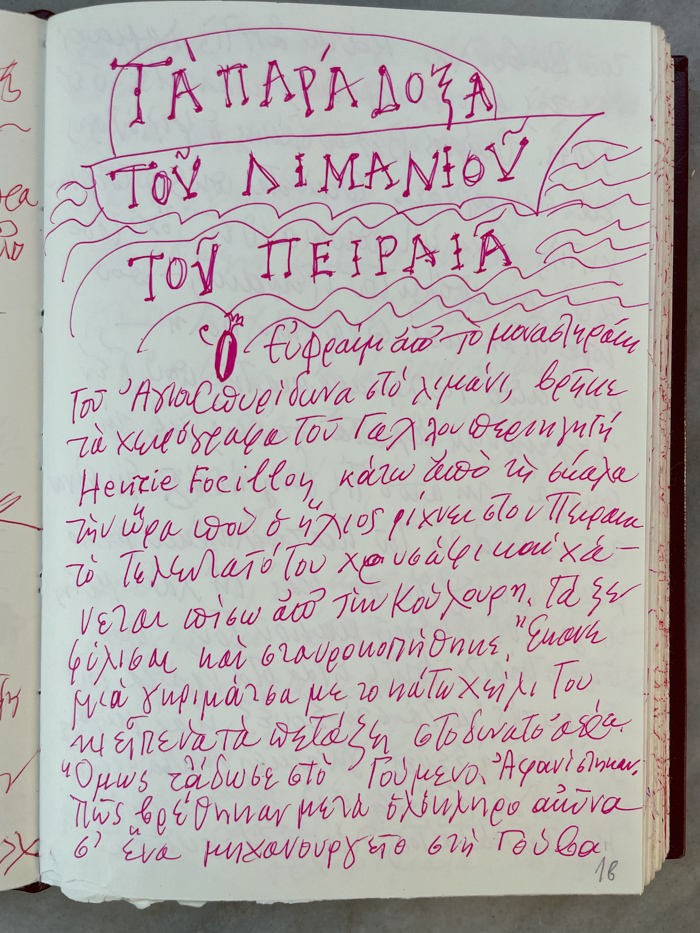 ΤᾺ ΠΑΡΆΔΟΞΑ
ΤΟῦ ΛΙΜΑΝΙΟῦ
ΤΟῦ ΠΕΙΡΑΙᾶ
Ὁ Εὐφραίμ ἀπό τὸ μοναστηράκι
τοῦ Ἁγιοσπυρίδωνα στό λιμάνι, βρῆκε
τὰ χειρόγραφα τοῦ Γάλλου περιηγητή
Henrie Focillon κάτω ἀπὸ τὴ σκάλα
τὴν ὥρα ποὺ ὁ ἥλιος ρίχνει στον Πειραια
τὸ τελευταῖο του χρυσάφι καὶ χά-
νεται πίσω ἀπό τὴν Κούλουρη. Τα ξε
φύλισε καὶ σταυροκοπήθηκε. Ἔκανε
μιά γκριμάτσα με το κάτω χείλι του
κι εἶπε να τὰ πετάξη στο δυνατό ἀέρα.
Ὅμως τἄδωσε στὸ Γούμενο. Ἀφανίστηκαν.
Πῶς βρέθηκαν μετά ὁλόκληρο αἰῶνα
σ' ἕνα μηχανουργεῖο στὴ Γούβα
16